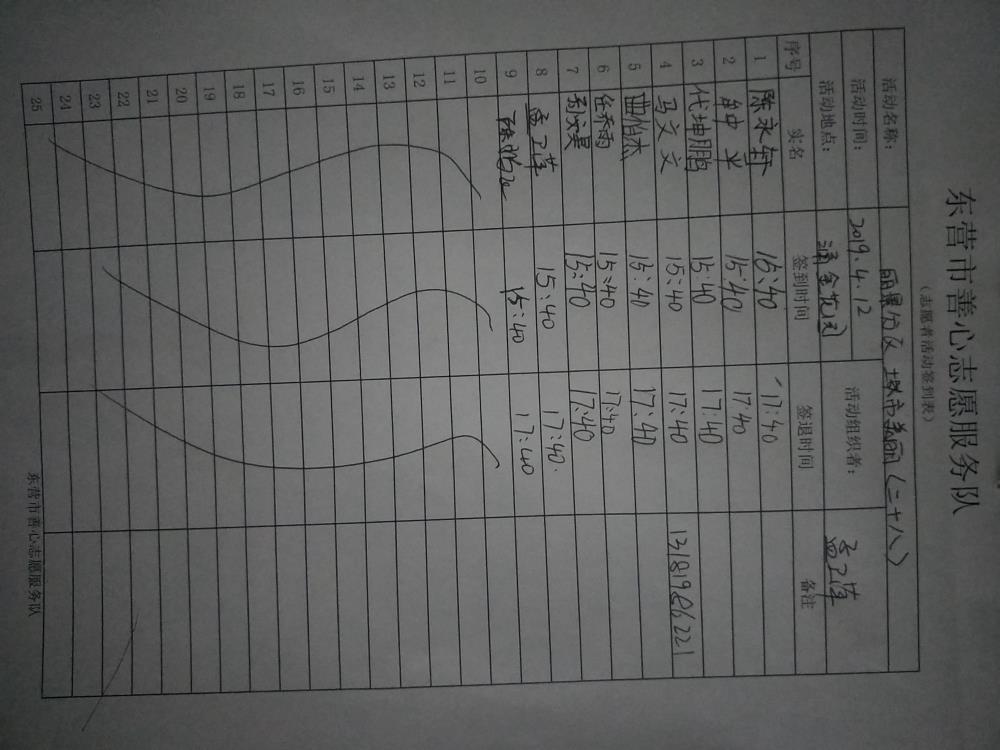 东营市善心志愿服务队
（志愿者活动签到表）
活动名称： 丽景分区 城市美丽（二十八）
活动时间： 2019.4.12 活动组织者： 孟卫萍
活动地点： 金花园
序号 实名 签到时间 签退时间 备注
1 陈永轩 15:40 17:40
2 平 15:40 17:40
3 代坤鹏 15:40 17:40
4 马文文 15:40 17:40 13181986221
5 曲怡杰 15:40 17:40
6 任乔雨 15:40 17:40
7 15:40 17:40
8 孟卫萍 15:40 17:40
9 15:40 17:40
10
11
12
13
14
15
16
17
18
19
20
21
22
23
24
25
东营市善心志愿服务队